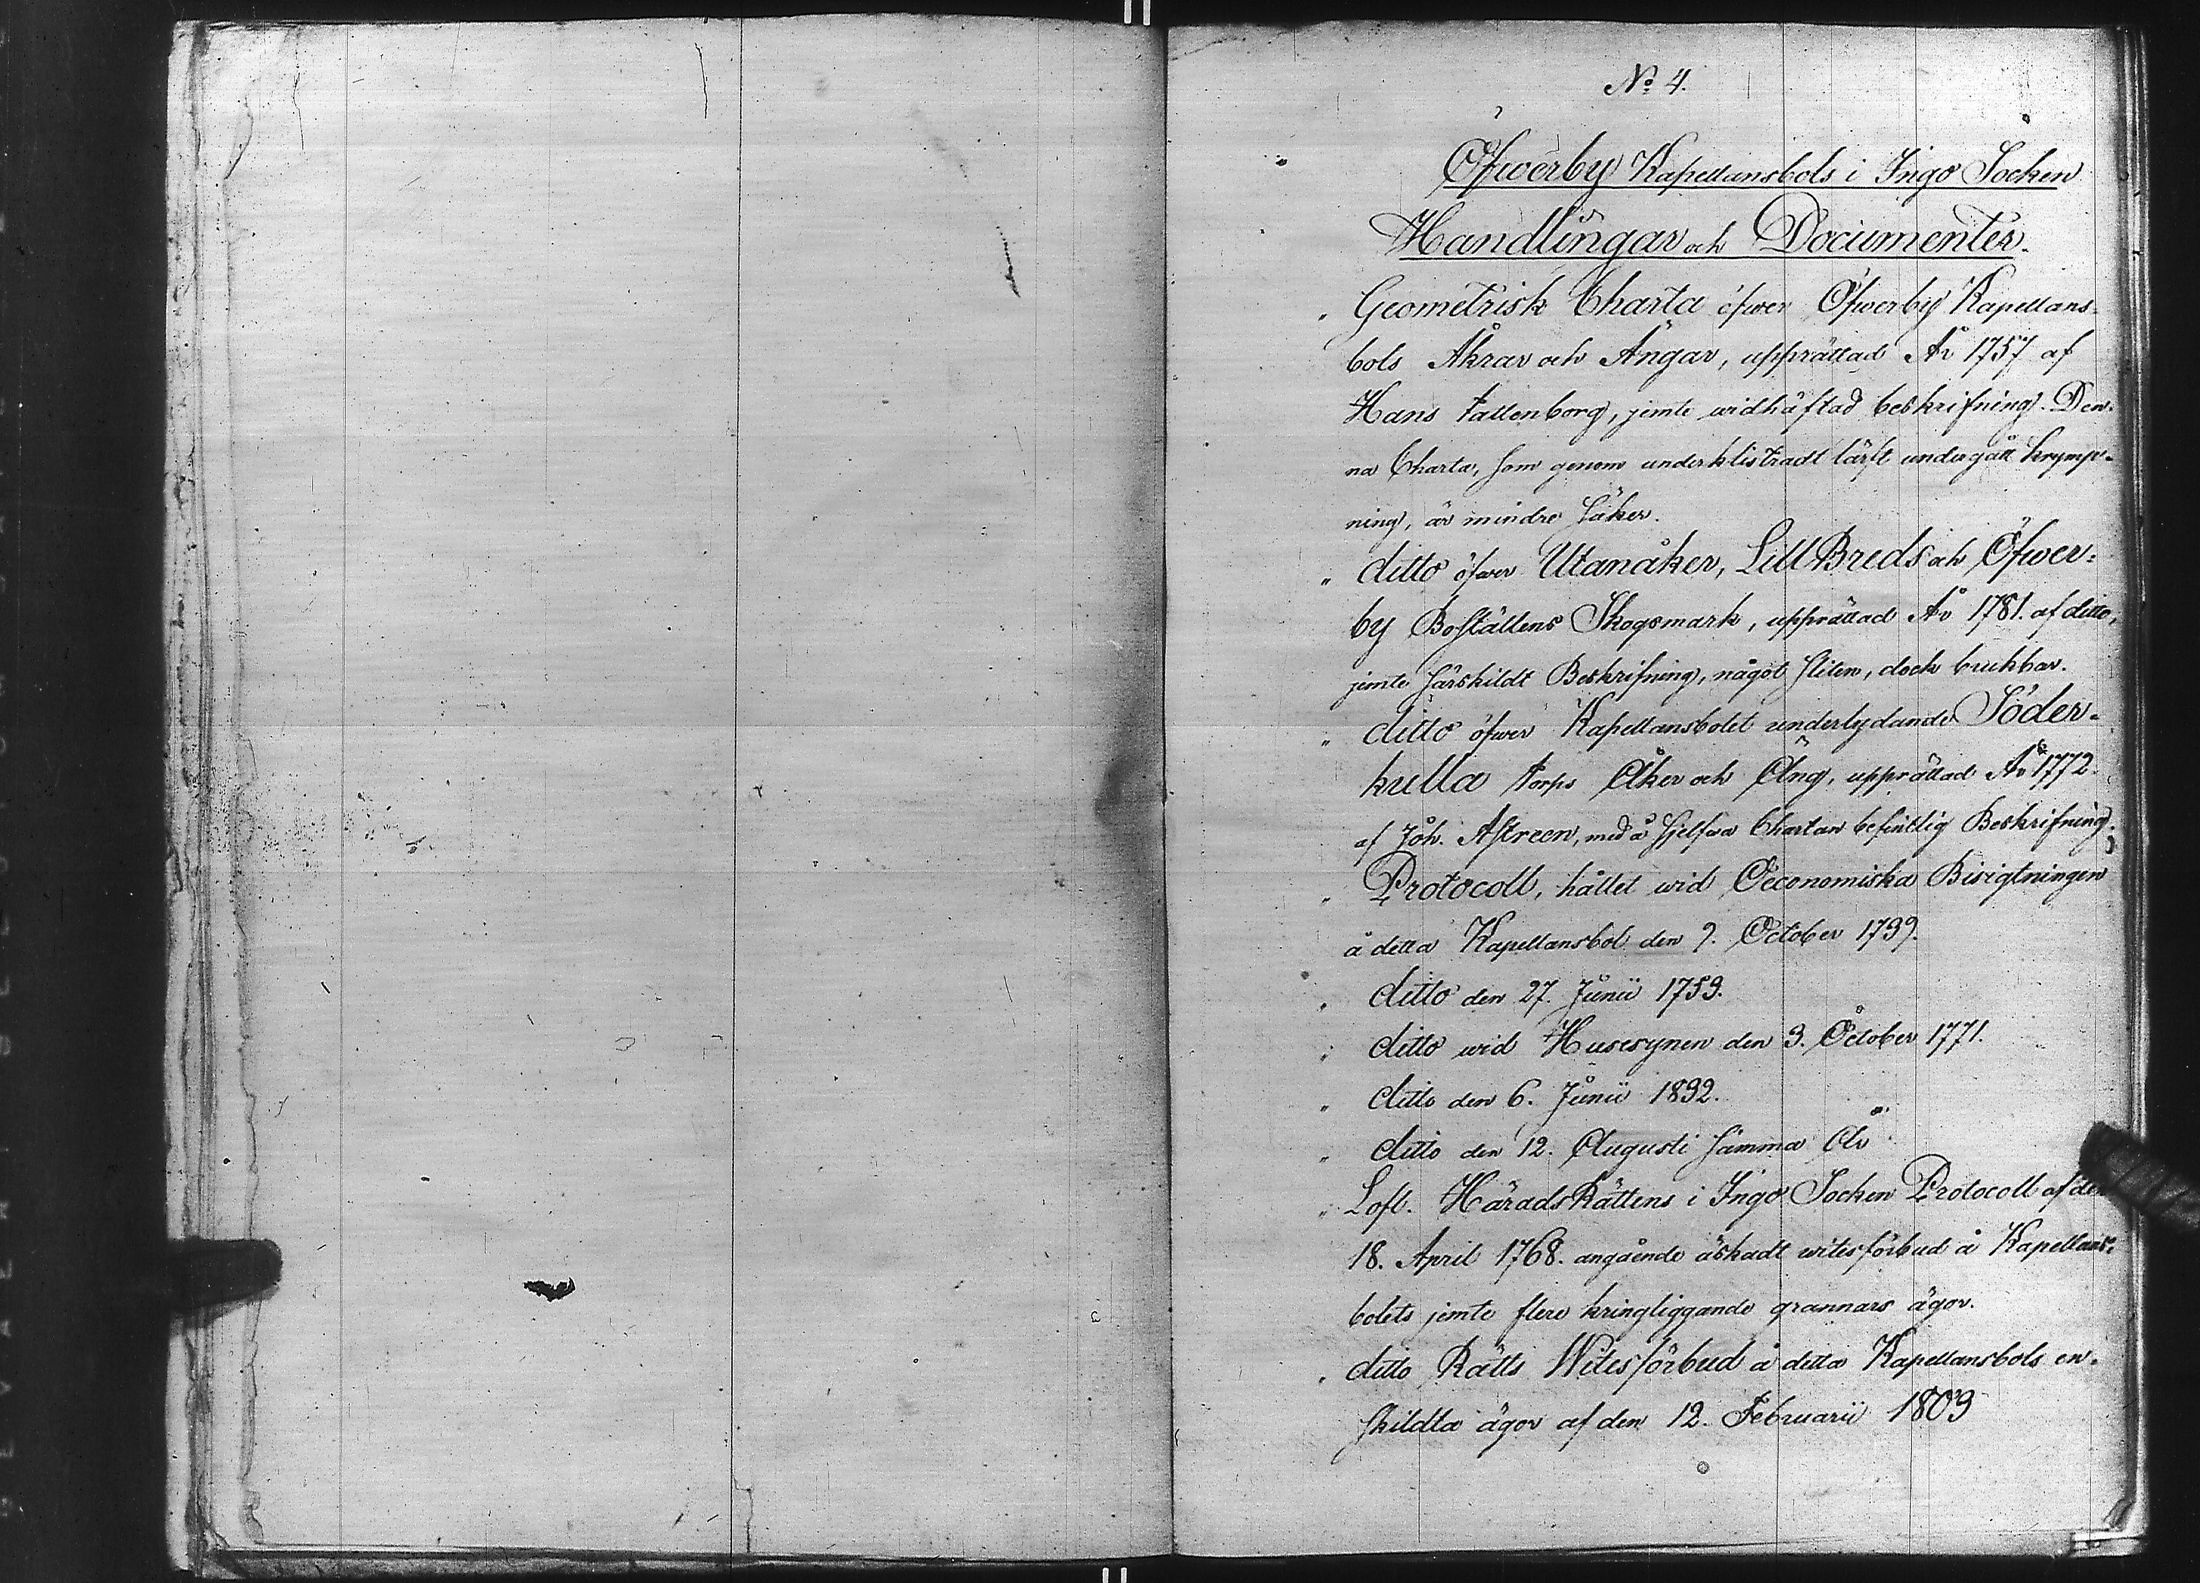 No 4.
Öfwerby Kapellansbols i Ingo Socken
Handlingar och Documenter.
" Geometrisk Charta öfwer Öfwerby Kapellans-
bols Åkrar och Ängar, upprättad År 1757 af
Hans Tallenborg, jemte widhäftad beskrifning. Den-
na Charta, som genom underklistradt lärft undergått krymp-
ning, är mindre säker.
" ditto öfwer Utanåker, Lill Breds och Öfwer-
by Boställens Skogsmark, upprättad År 1781. af ditto,
jemte särskildt Beskrifning, något sliten, dock brukbar.
" ditto öfwer Kapellansbolet underlydande Söder-
kulla torps Åker och Äng, upprättad År 1772.
af Joh. Astreen, med å sjelfwa Chartan befintlig Beskrifning.
" Protocoll, hållet wid Oeconomiska Besigtningen
å detta Kapellansbol den 9. October 1739.
" ditto den 27. Junii 1759.
" ditto wid Husesynen den 3. October 1771.
" ditto den 6. Junii 1832.
" ditto den 12. Augusti samma År
" Lofl. HäradsRättens i Ingo Socken Protocoll af den
18. April 1768. angående äskadt witesförbud å Kapellans-
bolets jemte flere kringliggande grannars ägor.
" ditto Rätts Witesförbud å detta Kapellansbols en-
skildta ägor af den 12. Februarii 1803